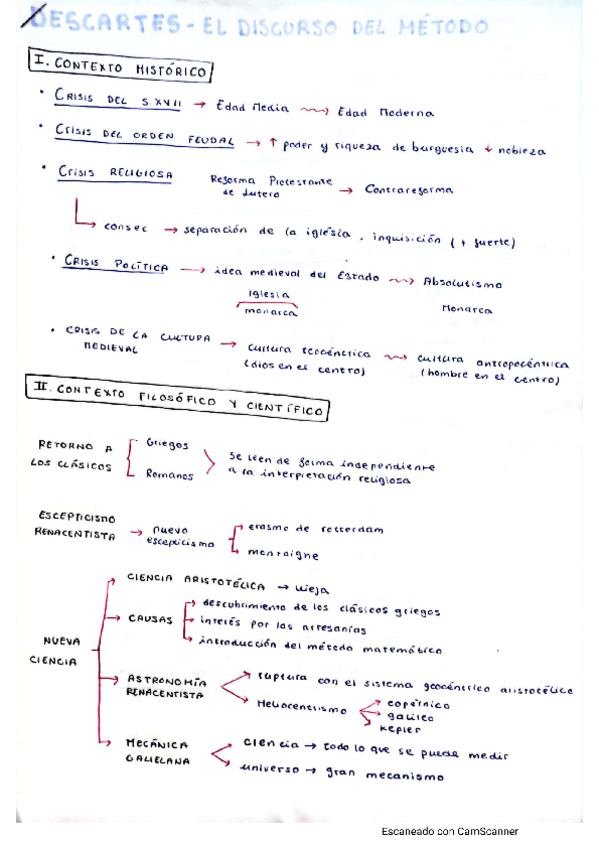 DESCARTES - EL DISCURSO DEL MÉTODO
I. CONTEXTO HISTÓRICO
• CRISIS DEL S.XVII → Edad Media ⇝ Edad Moderna
• CRISIS DEL ORDEN FEUDAL → ↑ poder y riqueza de burguesia ↓ nobleza
• CRISIS RELIGIOSA Reforma Protestante → Contrareforma
de Lutero
↳ consec → separación de la iglesia, inquisición (+ fuerte)
• CRISIS POLÍTICA → idea medieval del Estado ⇝ Absolutismo
Iglesia Monarca
monarca
• CRISIS DE LA CULTURA → cultura teocéntrica ⇝ cultura antropocéntrica
MEDIEVAL (dios en el centro) (hombre en el centro)
II. CONTEXTO FILOSÓFICO Y CIENTÍFICO
RETORNO A Griegos Se leen de forma independiente
LOS CLÁSICOS Romanos a la interpretación religiosa
ESCEPTICISMO → nuevo erasmo de rotterdam
RENACENTISTA escepticismo montaigne
CIENCIA ARISTOTÉLICA → vieja
descubrimiento de los clásicos griegos
CAUSAS interés por las artesanías
introducción del método matemático
NUEVA
CIENCIA
ASTRONOMÍA ruptura con el sistema geocéntrico aristotélico
RENACENTISTA Heliocentrismo copérnico
galileo
kepler
MECÁNICA ciencia → todo lo que se puede medir
GALILEANA universo → gran mecanismo
Escaneado con CamScanner